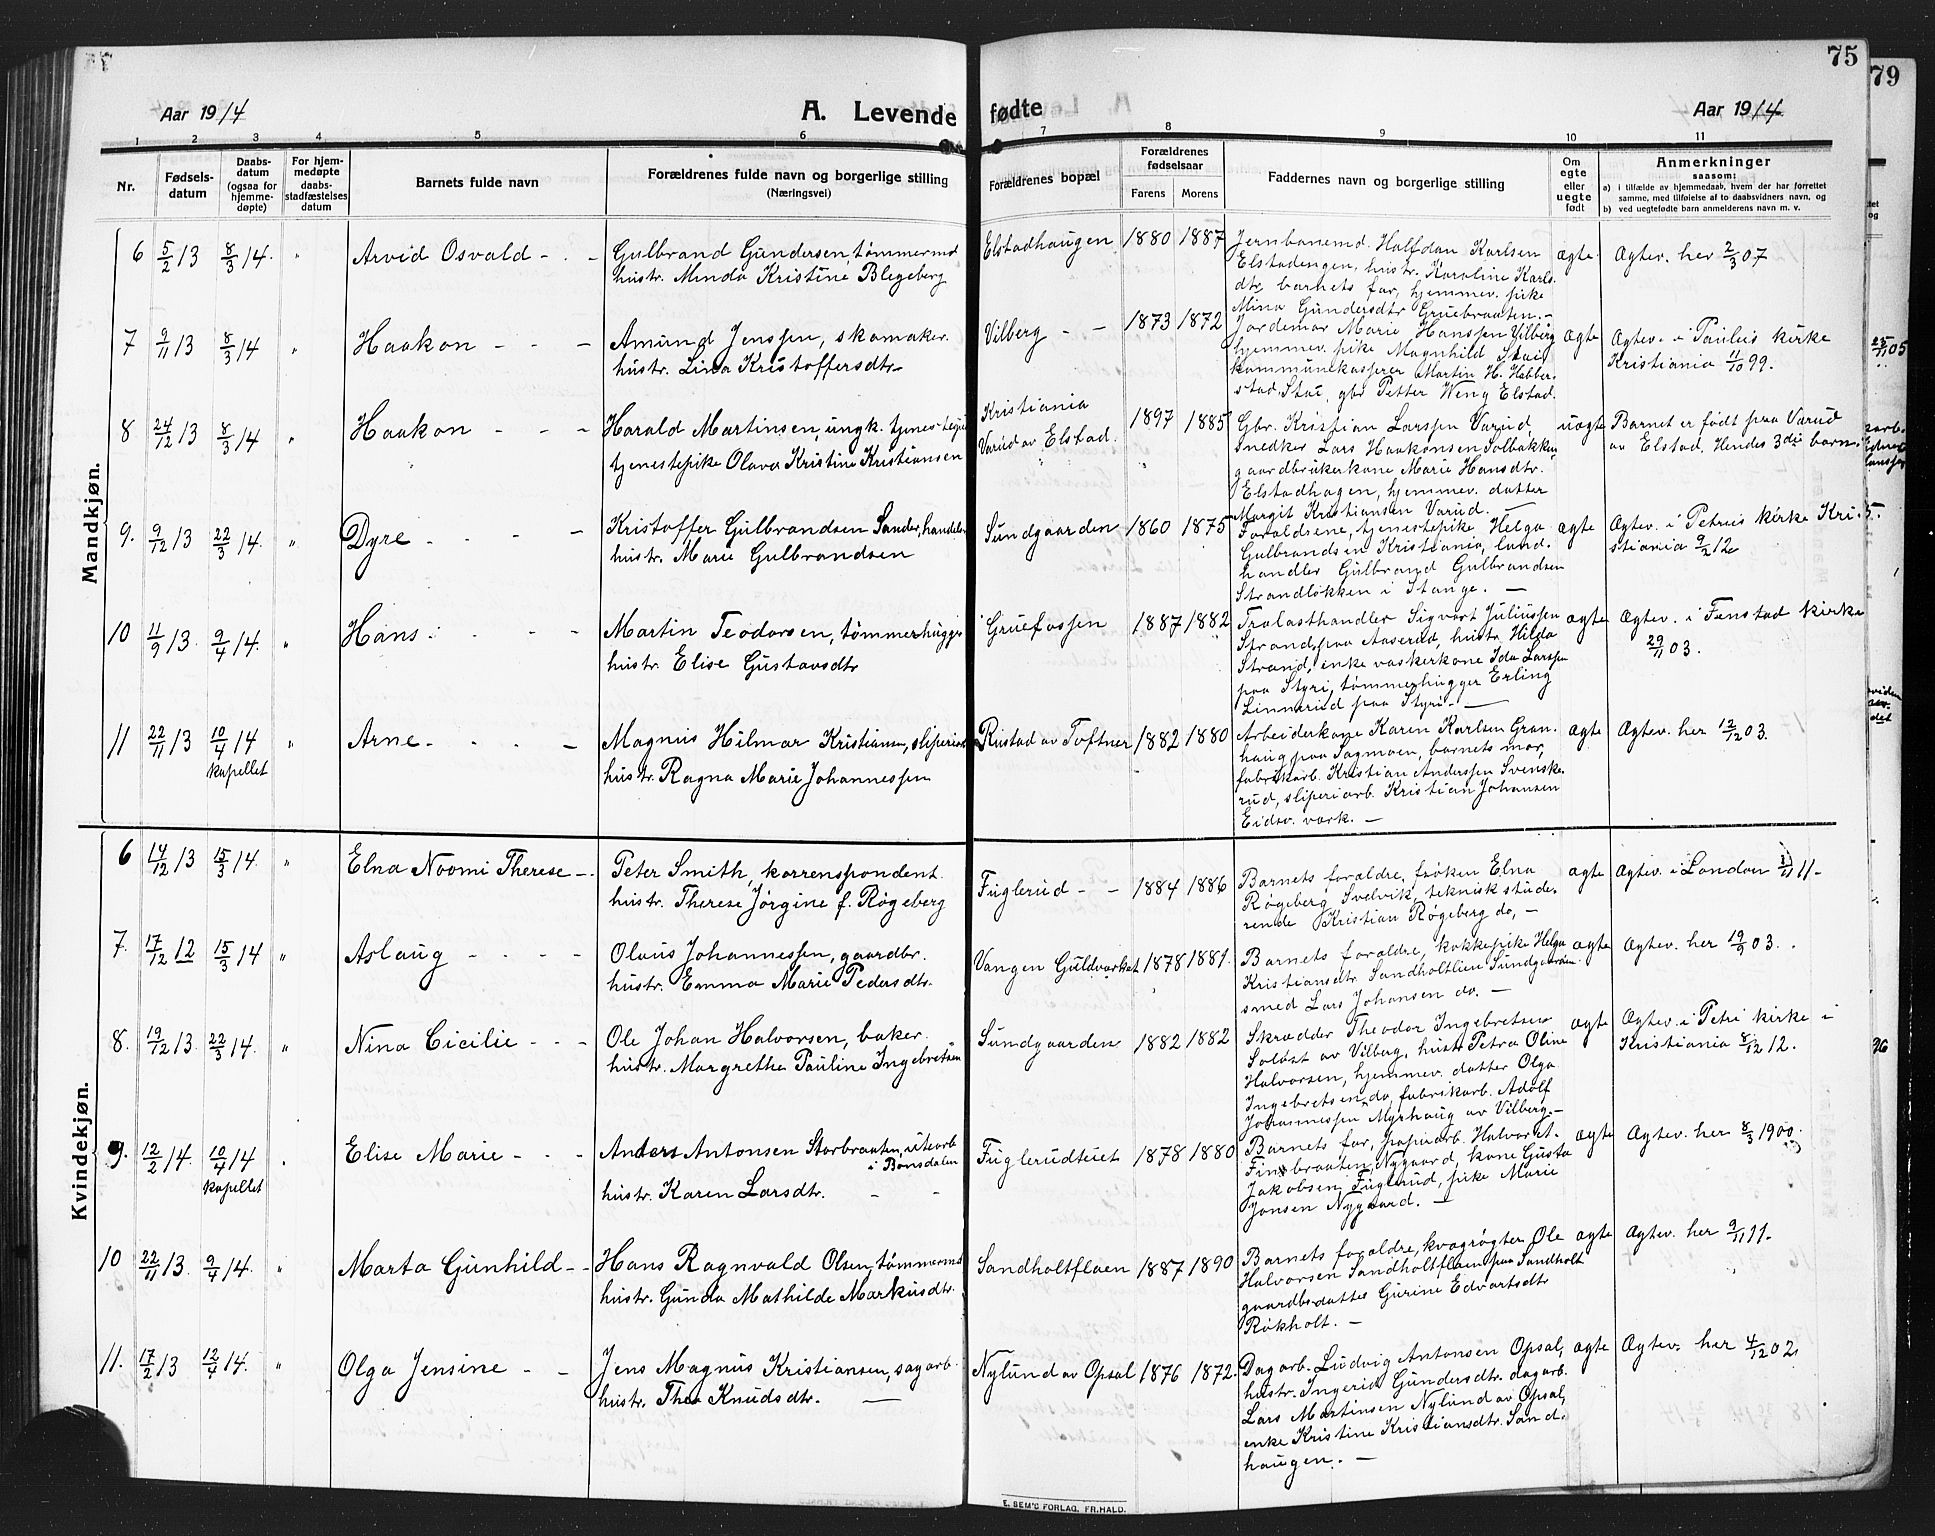 75
79
Aar 1914
A. Levende fødte
Aar 1914
1 2 3 4 5 6 7 8 9 10 11
Nr.
Fødsels-
datum
Daabs-
datum
(ogsaa for
hjemme-
døpte)
For hjem-
medøpte
daabs-
stadfæstelses
datum
Barnets fulde navn
Forældrenes fulde navn og borgerlige stilling
(Næringsvei)
Forældrenes bopæl
Forældrenes
fødselsaar
Farens Morens
Faddernes navn og borgerlige stilling
Om
egte
eller
uegte
født
Anmerkninger
saasom:
a) i tilfælde av hjemmedaab, hvem der har forrettet
samme, med tilføielse af to daabsvidners navn, og
b) ved uegtefødte barn anmelderens navn m. v.
Mandkjøn.
6 5/2 13 8/3 14. " Arvid Osvald - -
Gulbrand Gundersen, tømmermd
hustr. Minda Kristine Blegeberg
Elstadhaugen 1880 1887
Jernbanemd. Halfdan Karlsen
Elstadengen, hustr. Karoline Karls-
dtr, barnets far, hjemmev. pike
Mina Gundersdtr Gruebraaten. -
ægte. Ægtev. her 2/3 07
7 9/11 13 8/3 14 " Haakon - - -
Amund Jenssen, skomaker.
hustr. Lina Kristoffersdtr-
Vilberg - - 1873 1872
Jordemor Marie Hanssen Vilberg
hjemmev. pike Magnhild Stai
kommunekasserer Martin H. Habber-
stad, Stai, gbr Petter Weng Elstad.
ægte Ægtev. i Paulus kirke
Kristiania 11/10 99.
8 24/12 13 8/3 14 " Haakon - - -
Harald Martinsen, ungk. tjenestegut
tjenestepike Olava Kristine Kristiansen
Kristiania
Varud av Elstad. 1897 1885
Gbr. Kristian Larssen Varud,
snedker Lars Haakonsen Solbakken,
gaardbrukerkone Marie Hansdtr.
Elstadhagen, hjemmev. datter
Margit Kristiansen Varud. -
uægte Barnet er født paa Varud
av Elstad. Hendes 3die barn.
9. 9/12 13 22/3 14. " Dyre - - - -
Kristoffer Gulbrandsen Sander, handels
hustr. Marie Gulbrandsen
Sundgaarden 1860 1875
Forældrene, tjenestepike Helga
Gulbrandsen Kristiania, land-
handler Gulbrand Gulbrandsen
Strandløkken i Stange. -
ægte Ægtev. i Petrus kirke Kri-
stiania 9/2 12.
10 11/9 13. 9/4 14. " Hans - - - -
Martin Teodorsen, tømmerhugger
hustr. Elise Gustavsdtr
Gruefossen 1887 1882
Trælasthandler Sigvart Juliussen
Strand, paa Aaserud, hustr. Hilda
Strand, enke vaskerkone Ida Larssen
paa Styri, tømmerhugger Erling
Linnerud paa Styri. -
ægte Ægtev. i Fenstad kirke
29/11 03.
11 22/11 13 10/4 14 " Arne - - - -
kapellet
Magnus Hilmar Kristiansen, sliperiarb
hustr. Ragna Marie Johannessen
Rustad av Toftner 1882 1880
Arbeiderkone Karen Karlsen Gran-
haug paa Sagmoen, barnets mor,
fabrikarb. Kristian Anderssen Svenske-
rud, sliperiarb. Kristian Johansen
Eidsv. værk. -
ægte Ægtev. her 12/12 03.
Kvindekjøn.
6 14/12 13 15/3 14. " Elna Noomi Therese -
Peter Smith, korrenspondent.
hustr. Therese Jørgine f. Røgeberg
Fuglerud - - 1884 1886
Barnets forældre, frøken Elna
Røgeberg, Svelvik, teknisk stude-
rende Kristian Røgeberg do, -
ægte Ægtev. i London 11. -
7. 17/12 12 15/3 14 " Aslaug - - - -
Olaus Johannessen, gaardbr.
hustr. Emma Marie Pedersdtr.
Vangen Guldverket 1878 1881.
Barnets forældre, kokkepike Helga
Kristiansdtr. Sandholtlien Sundgaarden.
smed Lars Johansen do. -
ægte Ægtev. her 19/9 03.
8. 19/12 13. 22/3 14. " Nina Cicilie - - -
Ole Johan Halvorsen, baker.
hustr. Margrethe Pauline Ingebretsen
Sundgaarden 1882 1882
Skrædder Theodor Ingebretsen
Soløst av Vilberg, hustr. Petra Oline
Halvorsen, hjemmev. datter Olga
Ingebretsen do, fabrikarb. Adolf
Johannessen Myrhaug av Vilberg. -
ægte Ægtev. i Petri kirke i
Kristiania 8/12 12.
9. 12/2 14. 10/4 14 Elise Marie - - -
kapellet
Anders Antonsen Storbraaten, utearb
i Bønsdalen
hustr. Karen Larsdtr. - -
Fuglerudteiet 1878 1880
Barnets far, papirarb. Halvor T.
Finsbraaten, Nygaard, kone Gusta
Jakobsen Fuglerud, pike Marie
Jonsen Nygaard. -
ægte Ægtev. her 8/3 1900.
10 22/11 13. 9/4 14. " Marta Gunhild - -
Hans Ragnvald Olsen, tømmermd
hustr. Gunda Mathilde Markusdtr.
Sandholtflaen 1887 1890
Barnets forældre, kvægrøgter Ole
Halvorsen Sandholtflaen paa Sandholt
gaardbr.datter Gurine Edvartsdtr
Røkholt. -
ægte Ægtev. her 9/11 11.
11. 17/2 13 12/4 14. " Olga Jensine - -
Jens Magnus Kristiansen, sagarb.
hustr. Thea Knudsdtr. -
Nylund av Opsal 1876 1872.
Dagarb. Ludvig Antonsen Opsal,
hustr. Ingerid Gundersdtr. dagarb.
Lars Martinsen Nylund av Opsal,
enke Kristine Kristiansdtr. Sand-
haugen. -
ægte Ægtev. her 4/12 02.
E. SEM'S FORLAG, FR.HALD.